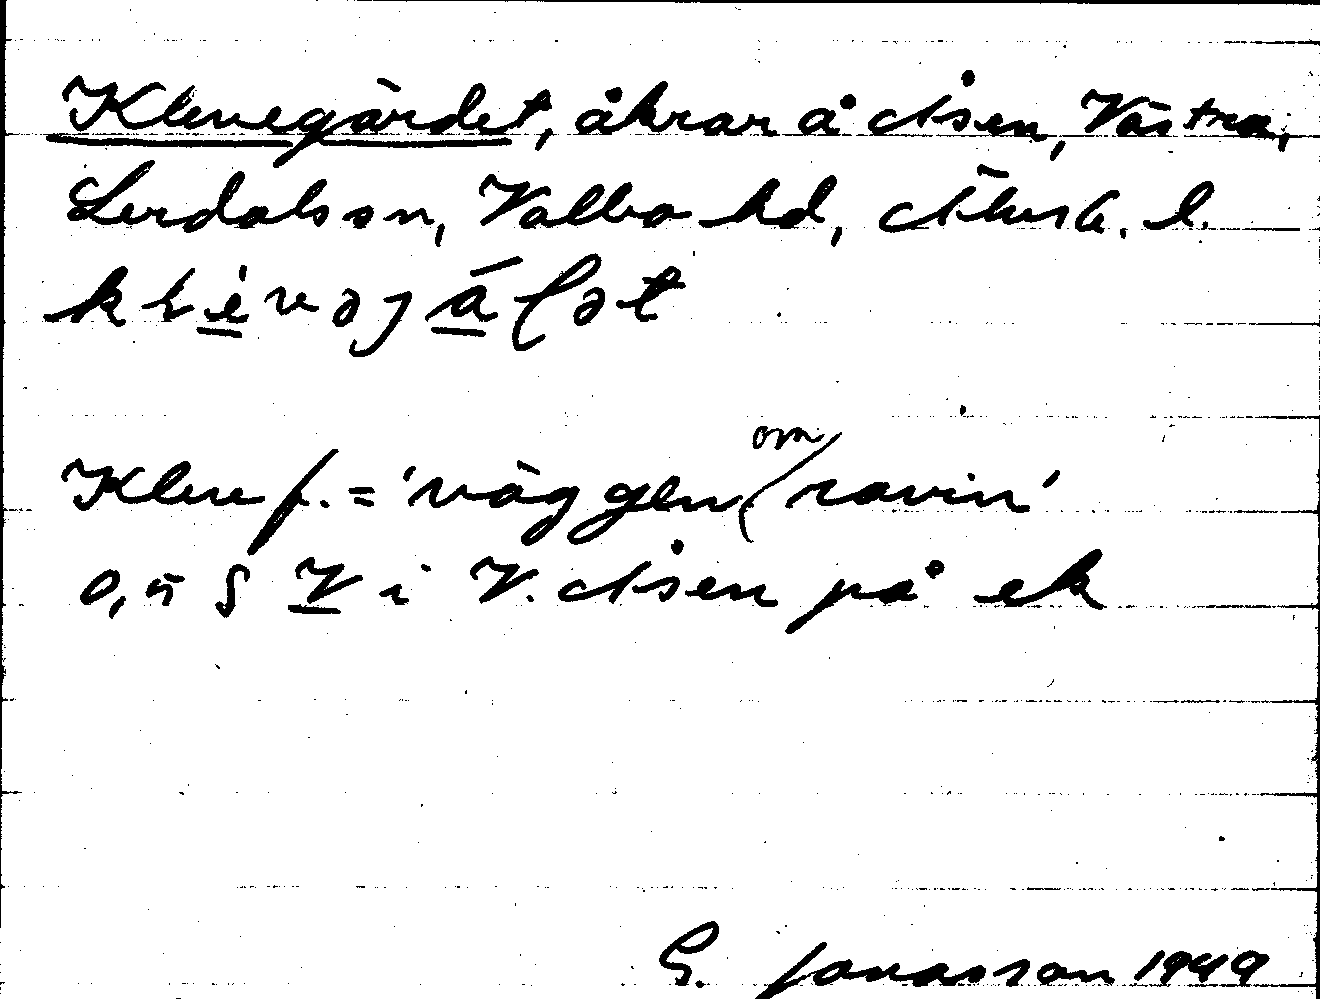 Klevegärdet, åkrar å Åsen, Västra,
Lerdals sn, Valbo hd, Älvsb. l.
Kleve f. = 'väg genom ravin'
0,5 § V i V. Åsen på ek
G. Jonasson 1949